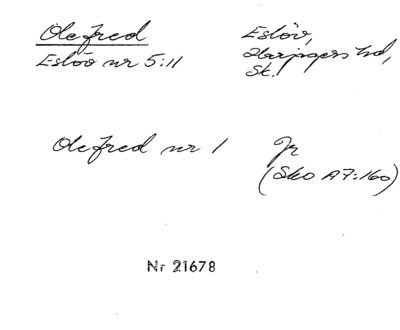 Olefred
Eslöv nr 5:11
Eslöv,
Harjagers hd,
Sk.
Olefred nr 1
Jr
(Sko A7:160)
Nr 21678